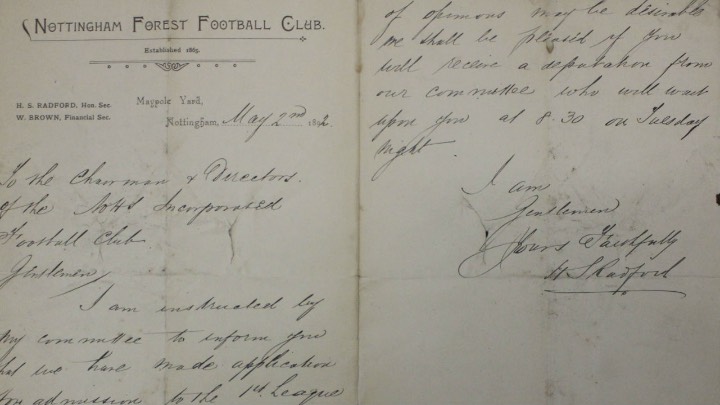 NOTTINGHAM FOREST FOOTBALL CLUB.
Established 1865.
H. S. RADFORD, Hon. Sec.
W. BROWN, Financial Sec.
Maypole Yard,
Nottingham, May 2nd 1892
To the Chairman & Directors
of the Notts Incorporated
Football Club
Gentlemen
I am instructed by
my committee to inform you
that we have made application
for admission to the 1st League
of opinions may be desirable
we shall be pleased if you
will receive a deputation from
our committee who will wait
upon you at 8.30 on Tuesday
night.
I am
Gentlemen
Yours Faithfully
H S Radford